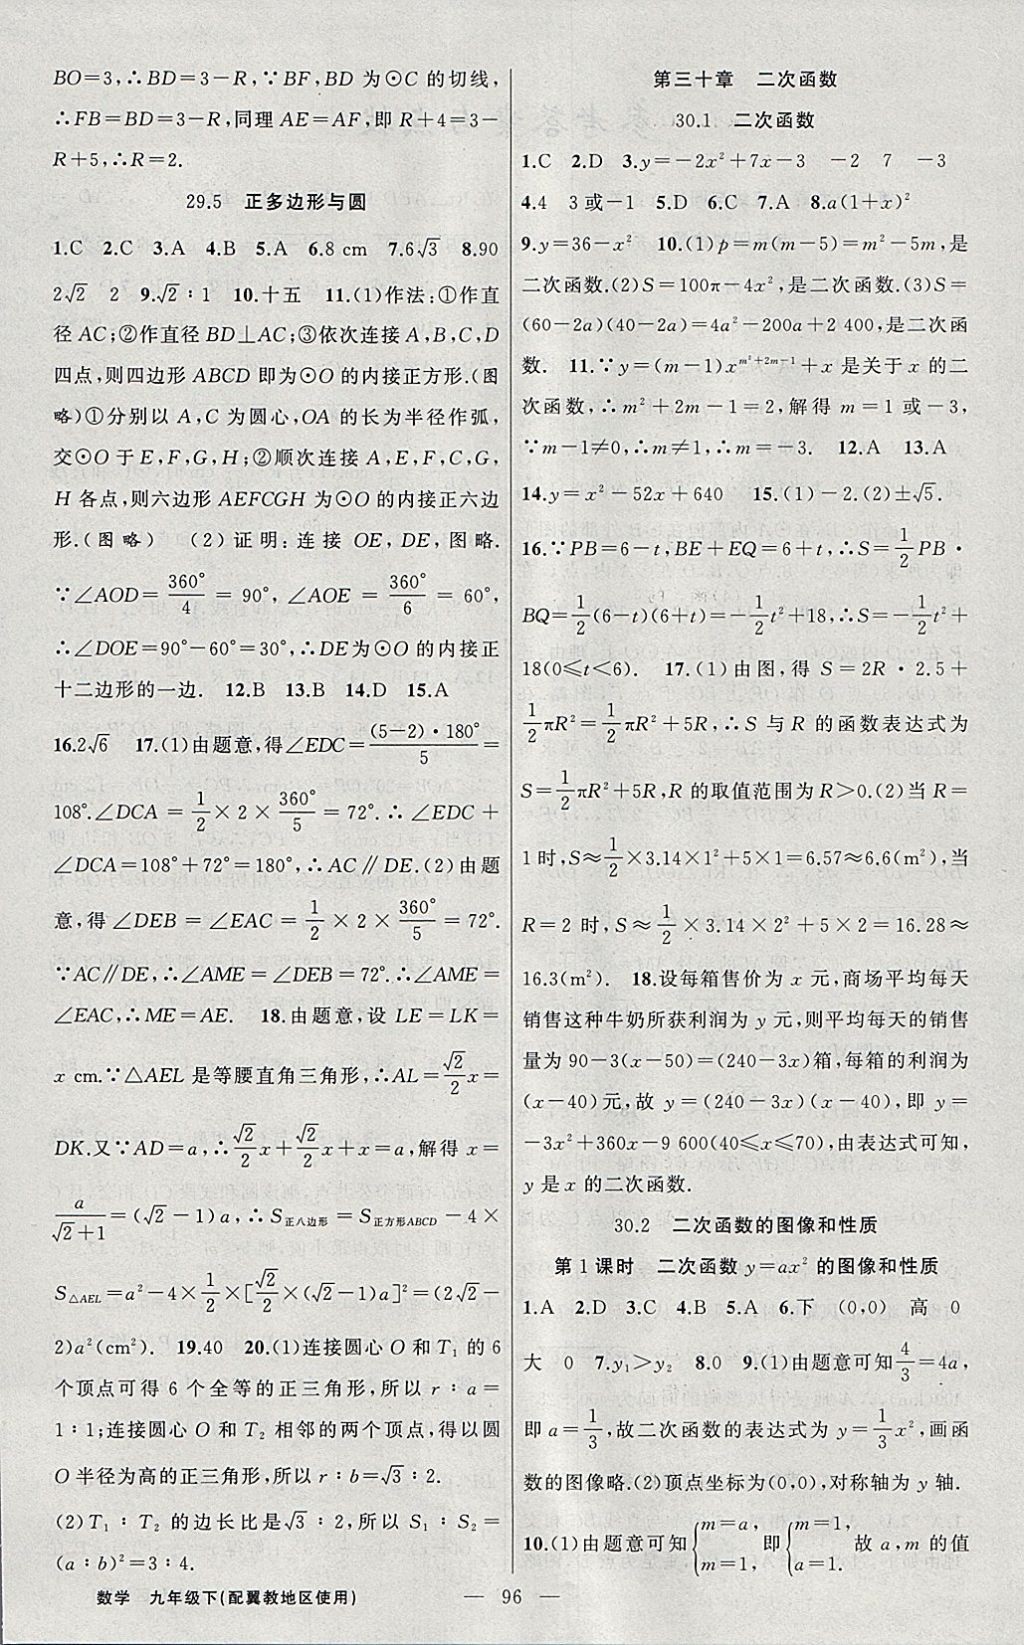 BO=3,∴BD=3-R,∵BF,BD 为⊙C 的切线,
∴FB=BD=3-R,同理 AE=AF,即 R+4=3-
R+5,∴R=2.
29.5 正多边形与圆
1.C 2.C 3.A 4.B 5.A 6.8 cm 7.6√3 8.90
2√2 2 9.√2∶1 10.十五 11.(1)作法:①作直
径 AC;②作直径 BD⊥AC;③依次连接 A,B,C,D
四点,则四边形 ABCD 即为⊙O 的内接正方形.(图
略)①分别以 A,C 为圆心,OA 的长为半径作弧,
交⊙O 于 E,F,G,H;②顺次连接 A,E,F,C,G,
H 各点,则六边形 AEFCGH 为⊙O 的内接正六边
形.(图略) (2)证明:连接 OE,DE,图略.
∵∠AOD=360°/4=90°,∠AOE=360°/6=60°,
∴∠DOE=90°-60°=30°,∴DE为⊙O 的内接正
十二边形的一边. 12.B 13.B 14.D 15.A
16.2√6 17.(1)由题意,得∠EDC=(5-2)·180°/5=
108°.∠DCA=1/2×2×360°/5=72°.∴∠EDC+
∠DCA=108°+72°=180°,∴AC∥DE.(2)由题
意,得∠DEB=∠EAC=1/2×2×360°/5=72°.
∵AC∥DE,∴∠AME=∠DEB=72°.∴∠AME=
∠EAC,∴ME=AE. 18.由题意,设 LE=LK=
x cm.∵△AEL 是等腰直角三角形,∴AL=√2/2x=
DK.又∵AD=a,∴√2/2x+√2/2x+x=a,解得 x=
a/(√2+1)=(√2-1)a,∴S正八边形=S正方形ABCD-4×
S△AEL=a²-4×1/2×[√2/2×(√2-1)a]²=(2√2-
2)a²(cm²). 19.40 20.(1)连接圆心 O 和 T₁ 的 6
个顶点可得 6 个全等的正三角形,所以 r∶a=
1∶1;连接圆心 O 和 T₂ 相邻的两个顶点,得以圆
O 半径为高的正三角形,所以 r∶b=√3∶2.
(2)T₁∶T₂ 的边长比是√3∶2,所以 S₁∶S₂=
(a∶b)²=3∶4.
第三十章 二次函数
30.1 二次函数
1.C 2.D 3.y=-2x²+7x-3 -2 7 -3
4.4 3或-1 5.D 6.C 7.A 8.a(1+x)²
9.y=36-x² 10.(1)p=m(m-5)=m²-5m,是
二次函数.(2)S=100π-4x²,是二次函数.(3)S=
(60-2a)(40-2a)=4a²-200a+2 400,是二次函
数. 11.∵y=(m-1)x^(m²+2m-1)+x 是关于 x 的二
次函数,∴m²+2m-1=2,解得 m=1 或-3,
∵m-1≠0,∴m≠1,∴m=-3. 12.A 13.A
14.y=x²-52x+640 15.(1)-2.(2)±√5.
16.∵PB=6-t,BE+EQ=6+t,∴S=1/2PB·
BQ=1/2(6-t)(6+t)=-1/2t²+18,∴S=-1/2t²+
18(0≤t<6). 17.(1)由图,得 S=2R·2.5+
1/2πR²=1/2πR²+5R,∴S 与 R 的函数表达式为
S=1/2πR²+5R,R 的取值范围为 R>0.(2)当 R=
1时,S≈1/2×3.14×1²+5×1=6.57≈6.6(m²),当
R=2 时,S≈1/2×3.14×2²+5×2=16.28≈
16.3(m²). 18.设每箱售价为 x 元,商场平均每天
销售这种牛奶所获利润为 y 元,则平均每天的销售
量为 90-3(x-50)=(240-3x)箱,每箱的利润为
(x-40)元,故 y=(240-3x)(x-40),即 y=
-3x²+360x-9 600(40≤x≤70),由表达式可知,
y 是 x 的二次函数.
30.2 二次函数的图像和性质
第 1 课时 二次函数 y=ax² 的图像和性质
1.A 2.D 3.C 4.B 5.A 6.下 (0,0) 高 0
大 0 7.y₁>y₂ 8.0 9.(1)由题意可知4/3=4a,
即 a=1/3,故二次函数的表达式为 y=1/3x²,画函
数的图像略.(2)顶点坐标为(0,0),对称轴为 y 轴.
10.(1)由题意可知{m=a, m=1,即{m=1, a=1.故 a,m 的值
数学 九年级下(配冀教地区使用)
— 96 —